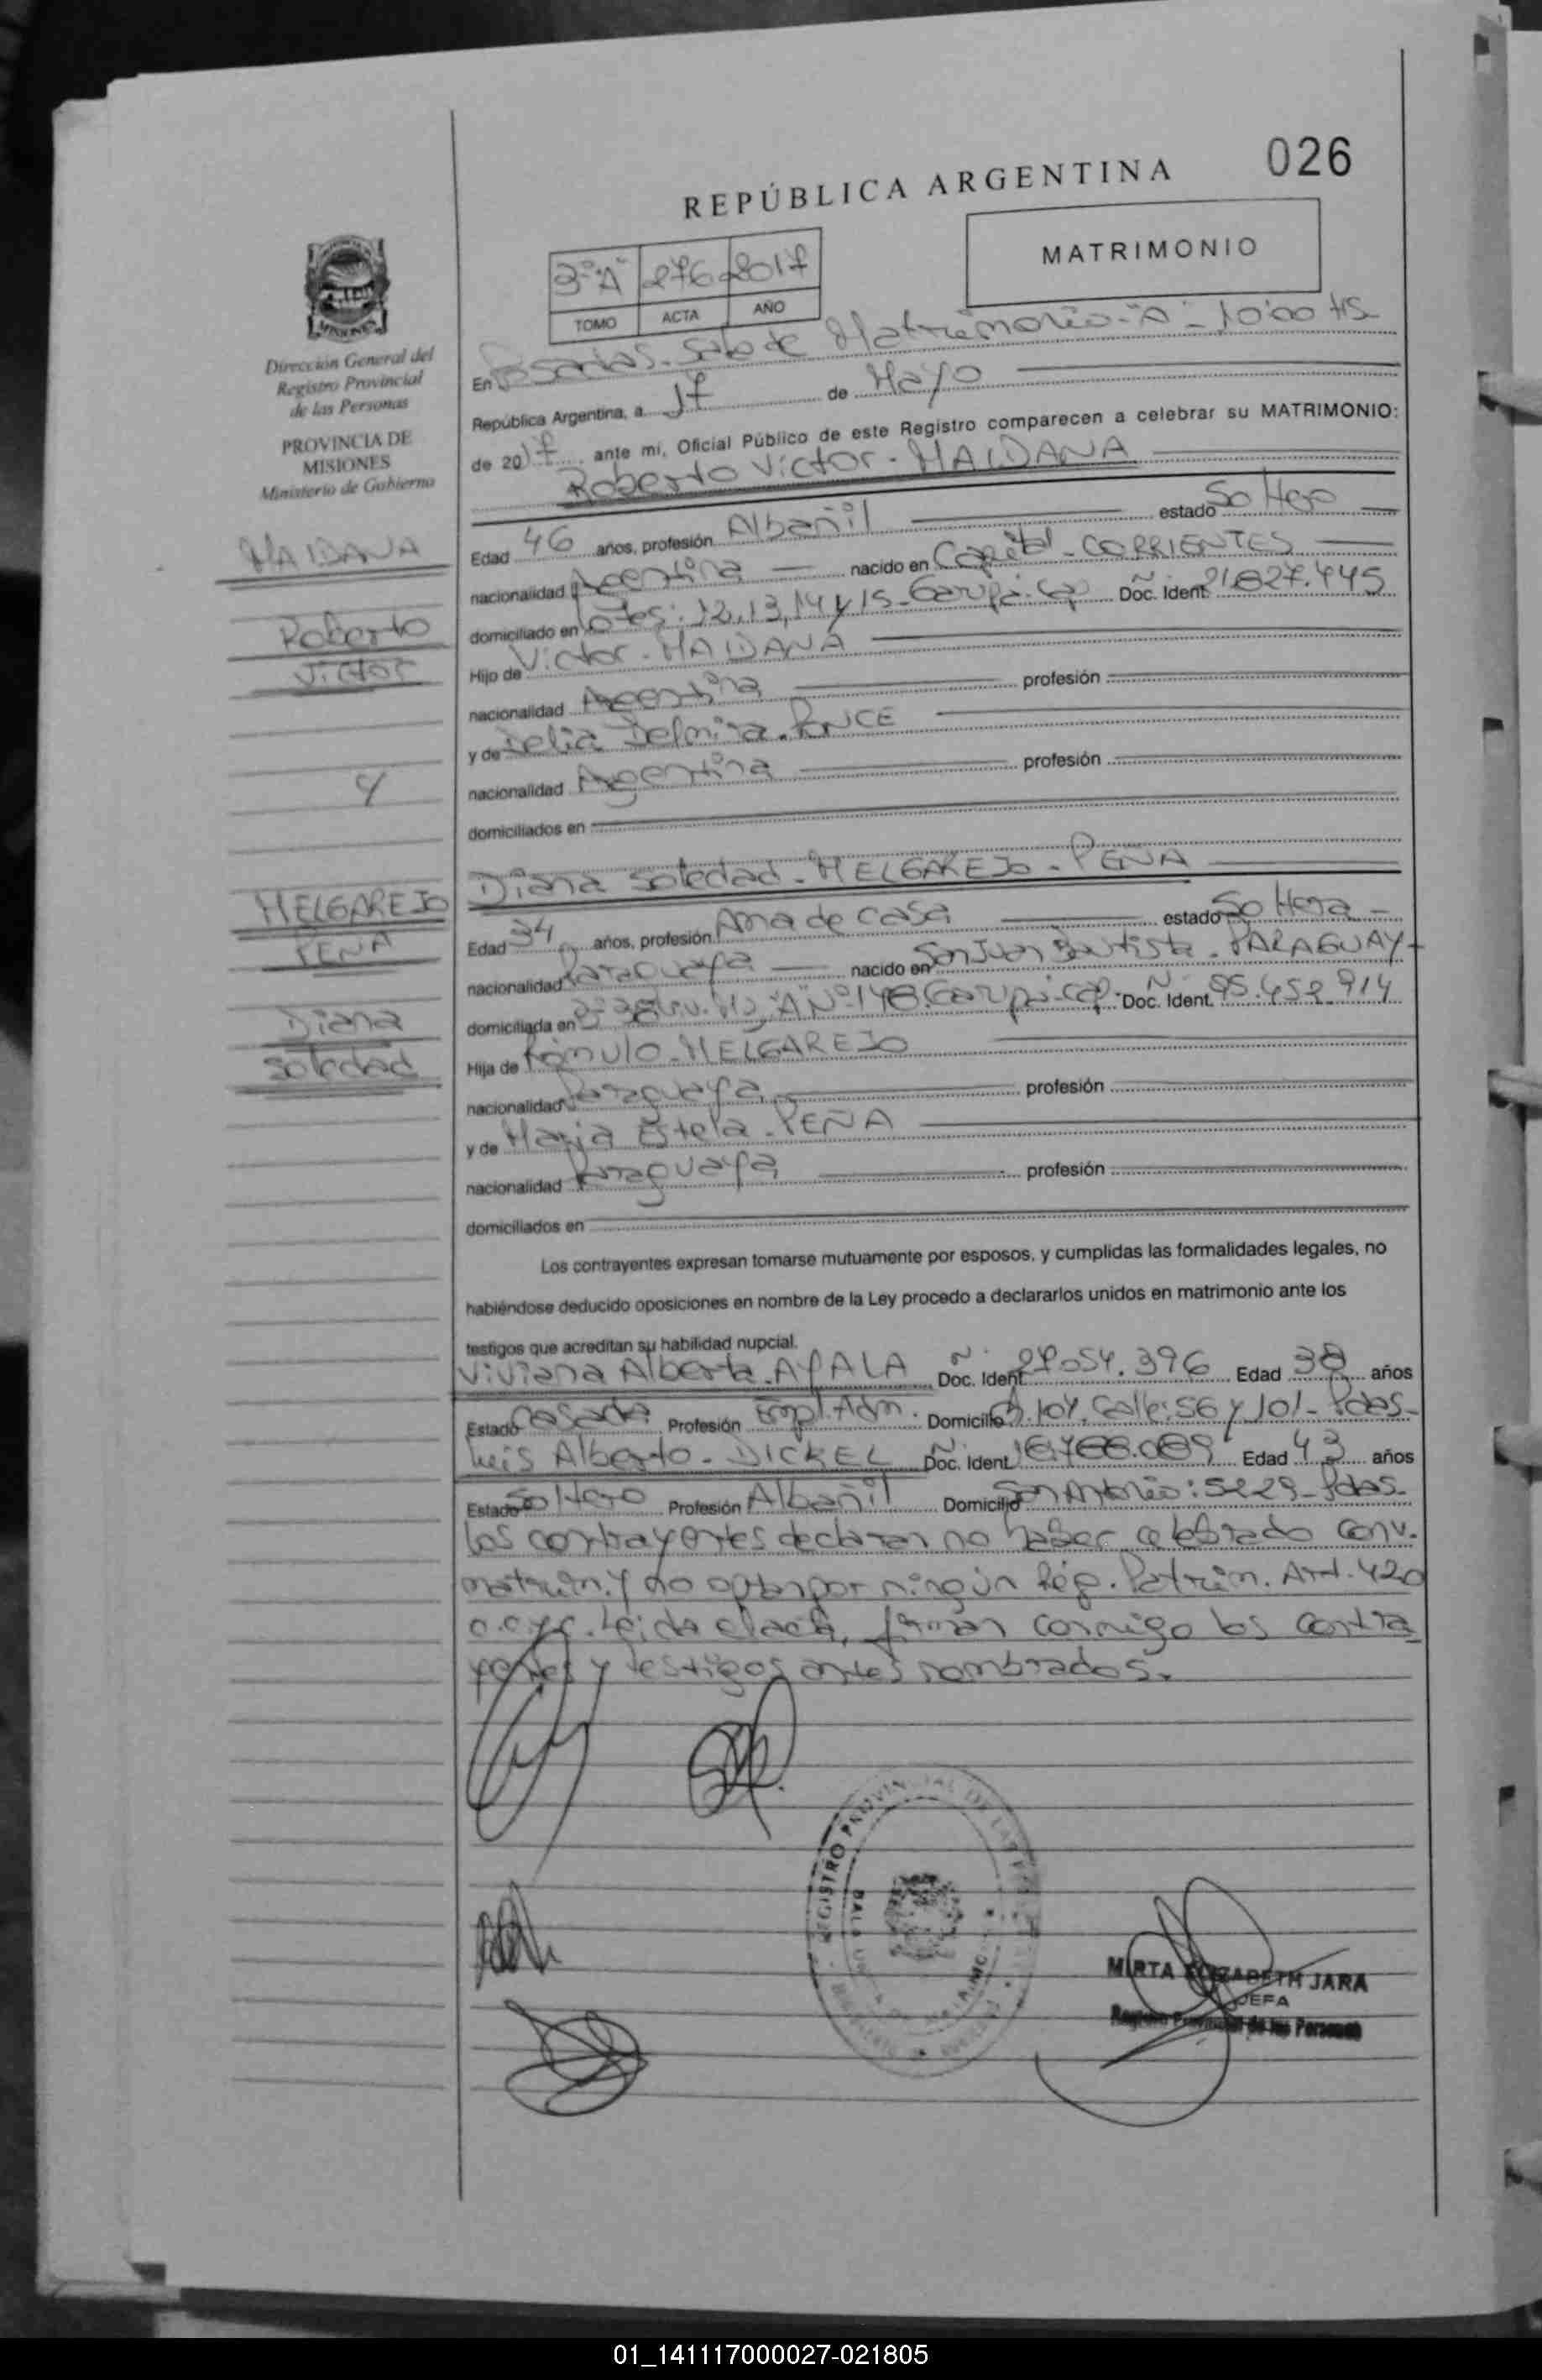 026
REPÚBLICA ARGENTINA
MATRIMONIO
3º "A" 276 2017
TOMO ACTA AÑO
MISIONES
Dirección General del
Registro Provincial
de las Personas
PROVINCIA DE
MISIONES
Ministerio de Gobierno
MAIDANA
Roberto
Victor
Y
MELGAREJO
PEÑA
Diana
Soledad
En Posadas - Sala de Matrimonio - "A" - 10:00 HS
República Argentina, a 17 de Mayo
de 2017 ante mi, Oficial Público de este Registro comparecen a celebrar su MATRIMONIO:
Roberto Victor - MAIDANA
Edad 46 años, profesión Albañil estado Soltero
nacionalidad Argentina nacido en Capital - CORRIENTES
domiciliado en Lotes: 12, 13, 14 y 15 - Garupá - Cap Doc. Ident. 21.827.445
Hijo de Victor - MAIDANA
nacionalidad Argentina profesión
y de Delia Delmira - PONCE
nacionalidad Argentina profesión
domiciliados en
Diana Soledad - MELGAREJO - PEÑA
Edad 34 años, profesión Ama de casa estado Soltera
nacionalidad Paraguaya nacido en San Juan Bautista - PARAGUAY
domiciliada en "A" Nº 148 Garupá - Cap - Doc. Ident. 95.452.914
Hija de Rómulo - MELGAREJO
nacionalidad Paraguaya profesión
y de Maria Estela - PEÑA
nacionalidad Paraguaya profesión
domiciliados en
Los contrayentes expresan tomarse mutuamente por esposos, y cumplidas las formalidades legales, no
habiéndose deducido oposiciones en nombre de la Ley procedo a declararlos unidos en matrimonio ante los
testigos que acreditan su habilidad nupcial.
Viviana Alberta - AYALA Doc. Ident. 27.054.396 Edad 38 años
Estado Casada Profesión Empl. Adm. Domicilio 104, Calle: 56 y 101 - Pdas -
Luis Alberto - DICKEL Doc. Ident. Edad 43 años
Estado Soltero Profesión Albañil Domicilio San Antonio: 5229 - Pdas -
Los contrayentes declaran no haber celebrado Conv.
matrim. y no optan por ningún Rég. Patrim. Art. 420
c.c y c. Leida el acta, firman conmigo los contra
yentes y testigos antes nombrados.
REGISTRO PROVINCIAL DE LAS
MIRTA ELIZABETH JARA
JEFA
Registro Provincial de las Personas
01_141117000027-021805